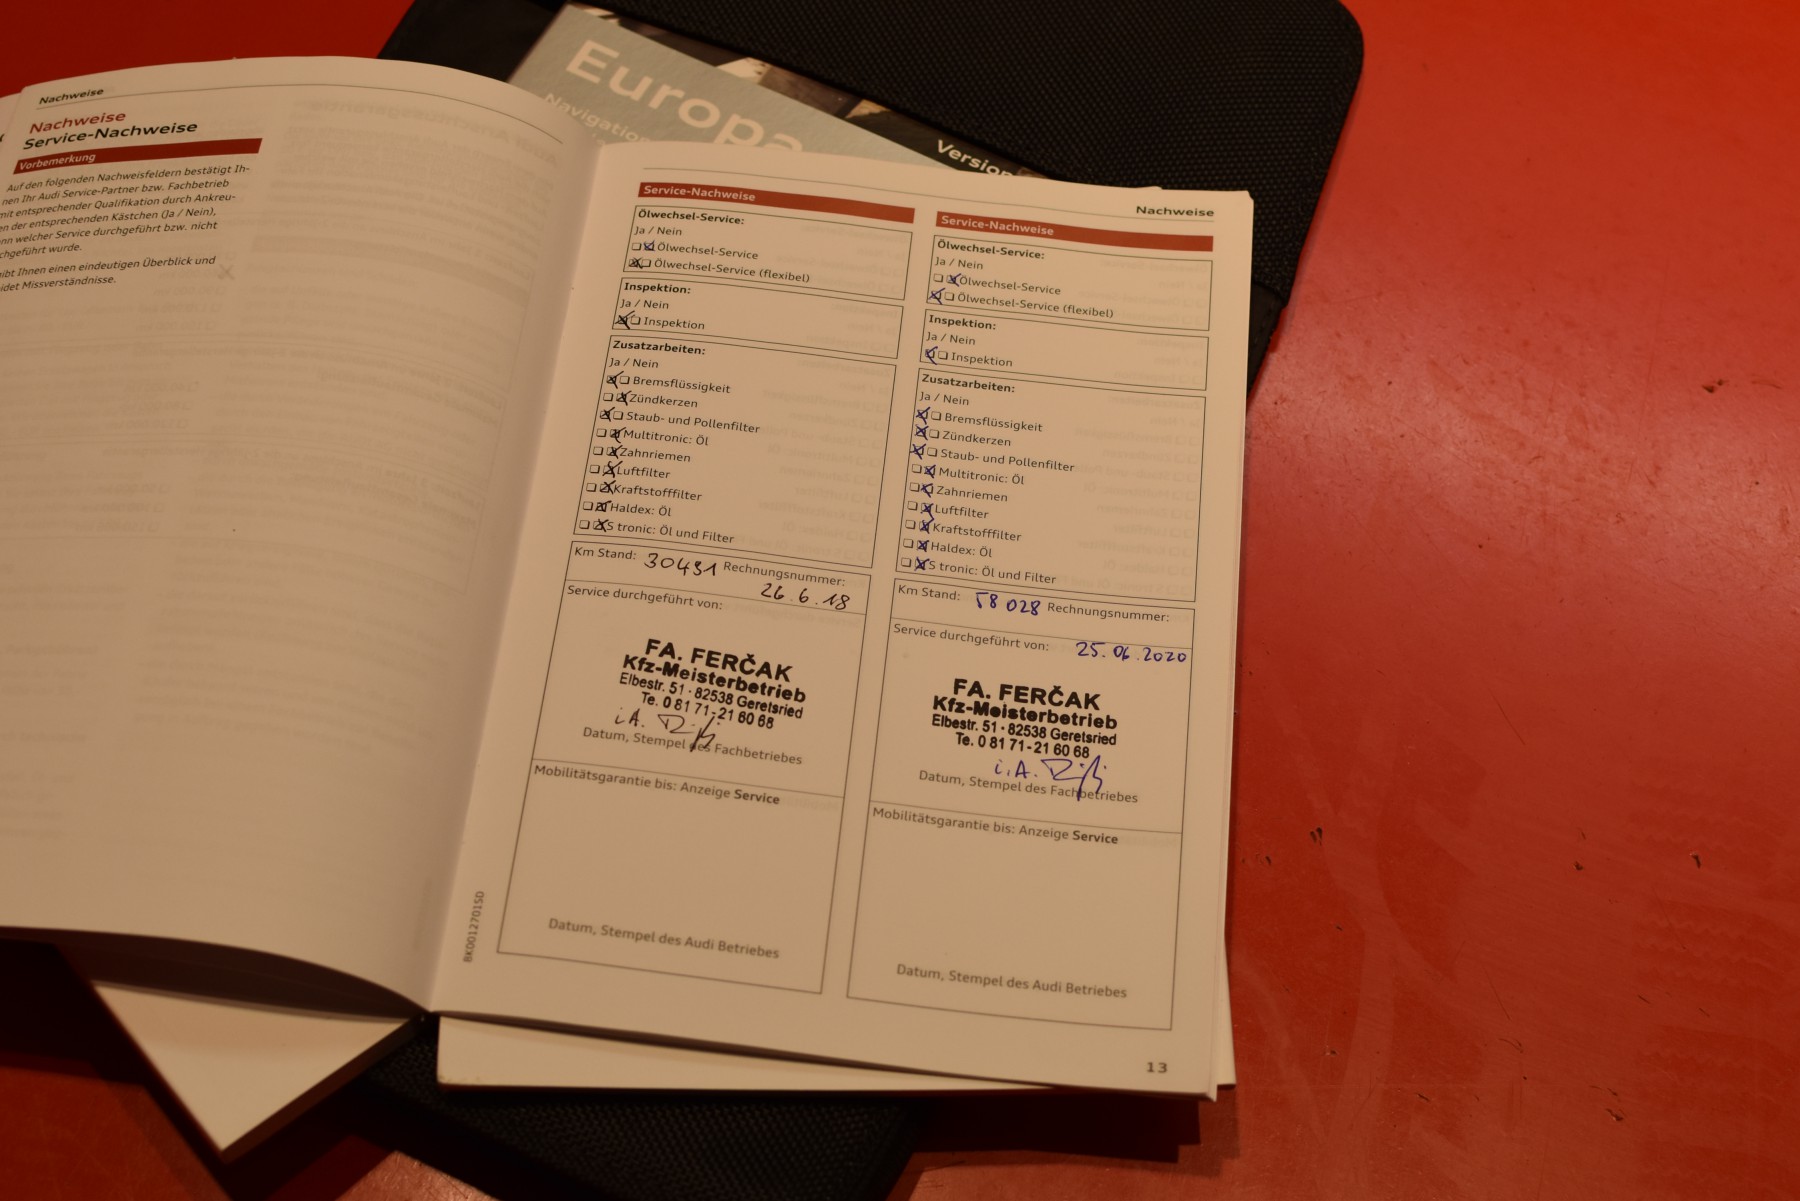 Europa
Navigation
Version
Nachweise
Nachweise
Service-Nachweise
Vorbemerkung
Auf den folgenden Nachweisfeldern bestätigt Ih-
nen Ihr Audi Service-Partner bzw. Fachbetrieb
mit entsprechender Qualifikation durch Ankreu-
en der entsprechenden Kästchen (Ja / Nein),
nn welcher Service durchgeführt bzw. nicht
chgeführt wurde.
ibt Ihnen einen eindeutigen Überblick und
idet Missverständnisse.
Service-Nachweise
Ölwechsel-Service:
Ja / Nein
Ölwechsel-Service
Ölwechsel-Service (flexibel)
Inspektion:
Ja / Nein
Inspektion
Zusatzarbeiten:
Ja / Nein
Bremsflüssigkeit
Zündkerzen
Staub- und Pollenfilter
Multitronic: Öl
Zahnriemen
Luftfilter
Kraftstofffilter
Haldex: Öl
S tronic: Öl und Filter
Km Stand: 30431 Rechnungsnummer:
26.6.18
Service durchgeführt von:
FA. FERČAK
Kfz-Meisterbetrieb
Elbestr. 51 · 82538 Geretsried
Te. 0 81 71 - 21 60 68
i.A.
Datum, Stempel des Fachbetriebes
Mobilitätsgarantie bis: Anzeige Service
Datum, Stempel des Audi Betriebes
8K0012701SD
Nachweise
Service-Nachweise
Ölwechsel-Service:
Ja / Nein
Ölwechsel-Service
Ölwechsel-Service (flexibel)
Inspektion:
Ja / Nein
Inspektion
Zusatzarbeiten:
Ja / Nein
Bremsflüssigkeit
Zündkerzen
Staub- und Pollenfilter
Multitronic: Öl
Zahnriemen
Luftfilter
Kraftstofffilter
Haldex: Öl
S tronic: Öl und Filter
Km Stand: 58 028 Rechnungsnummer:
Service durchgeführt von: 25.06.2020
FA. FERČAK
Kfz-Meisterbetrieb
Elbestr. 51 · 82538 Geretsried
Te. 0 81 71 - 21 60 68
i.A.
Datum, Stempel des Fachbetriebes
Mobilitätsgarantie bis: Anzeige Service
Datum, Stempel des Audi Betriebes
13